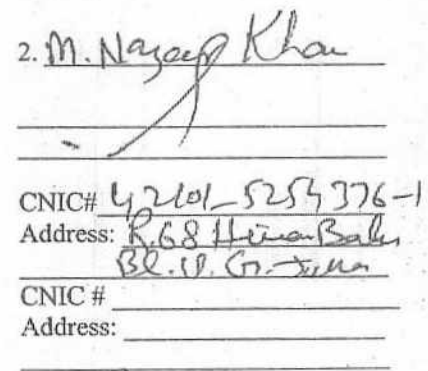 2. M. Nazeer Khan
CNIC# 42101-5254376-1
Address: R.68
Bl.
CNIC #
Address: